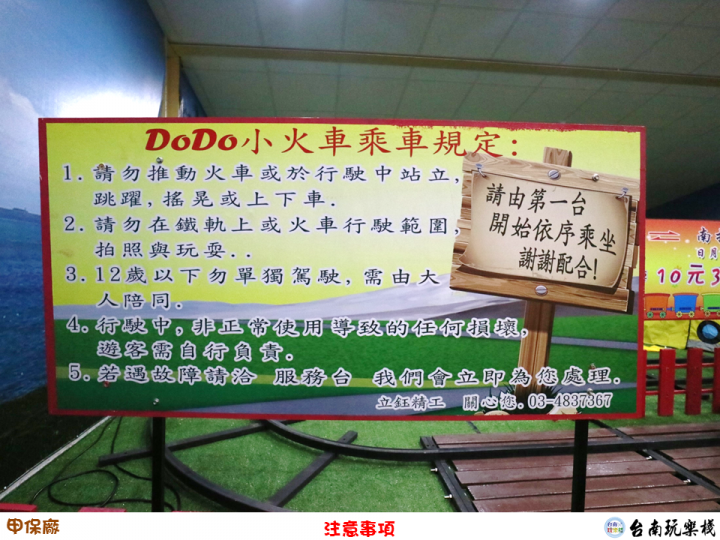 DoDo小火車乘車規定:
1.請勿推動火車或於行駛中站立,
跳躍,搖晃或上下車.
2.請勿在鐵軌上或火車行駛範圍,
拍照與玩耍..
3.12歲以下勿單獨駕駛,需由大
人陪同.
4.行駛中,非正常使用導致的任何損壞,
遊客需自行負責.
5.若遇故障請洽 服務台 我們會立即為您處理.
立鈺精工 關心您.03-4837367
請由第一台
開始依序乘坐
謝謝配合!
南
日月
10元3
甲保廠
注意事項
台南玩樂棧